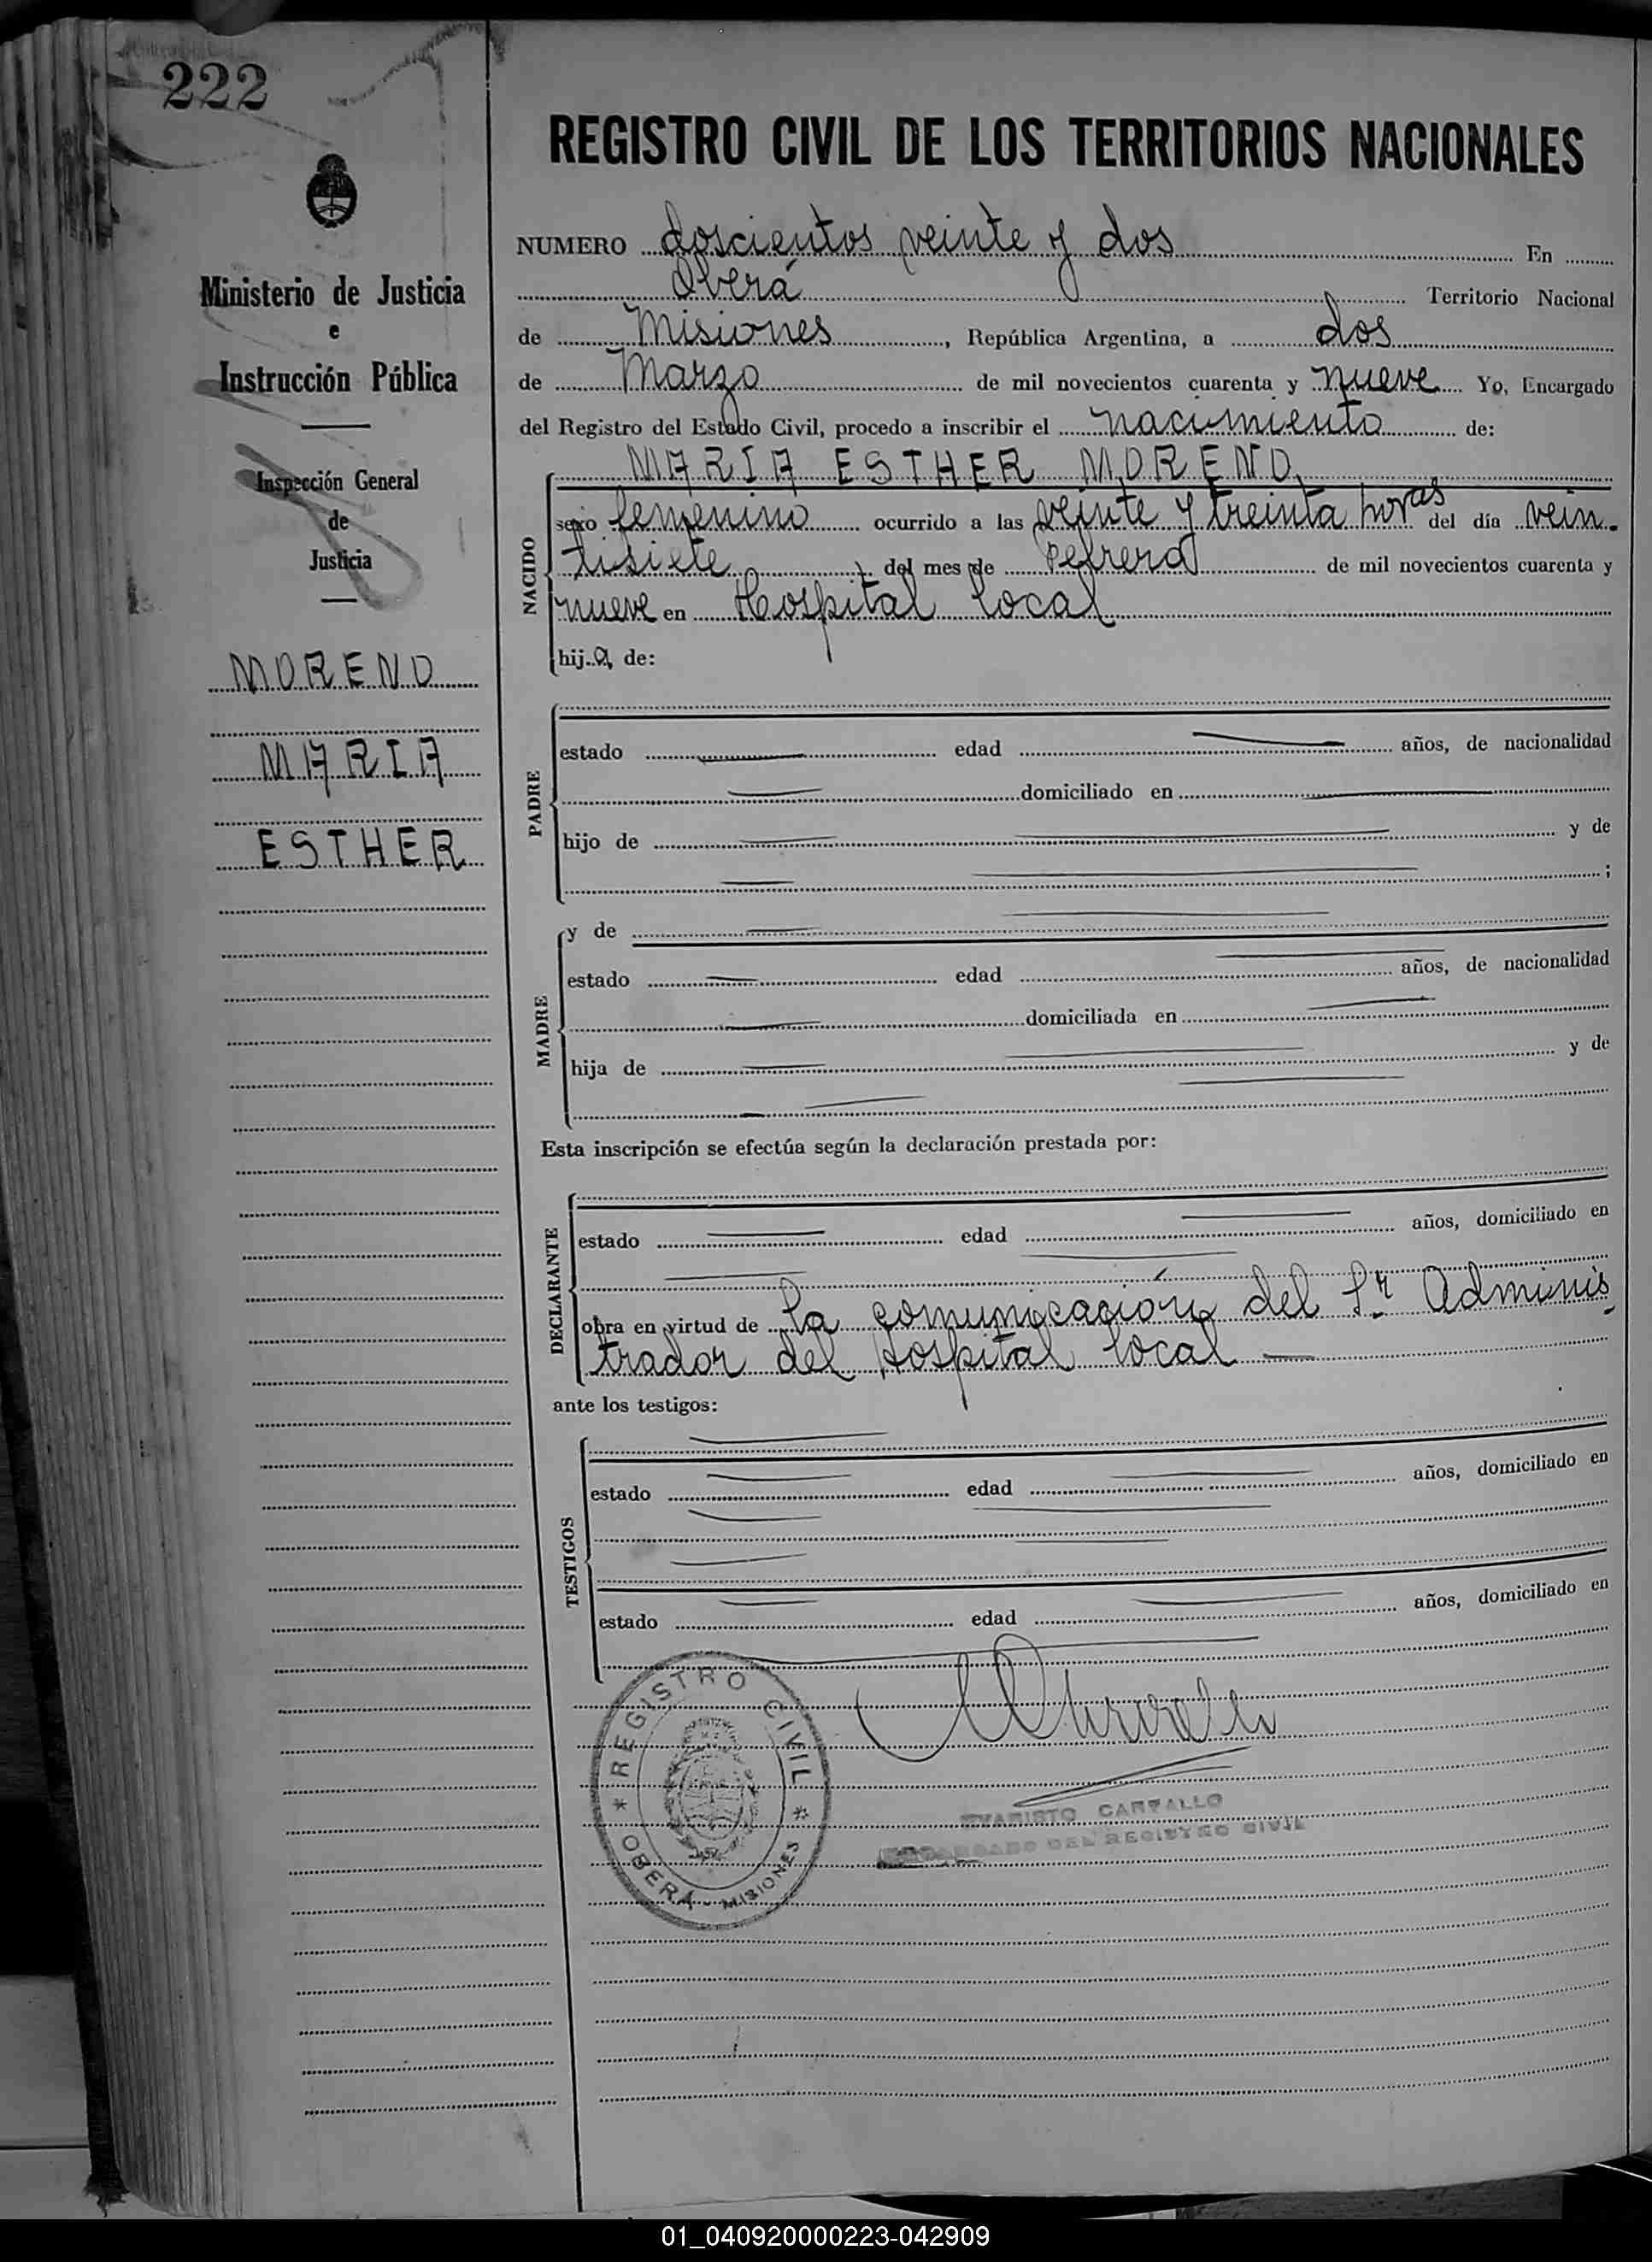 222
Ministerio de Justicia
e
Instrucción Pública
Inspección General
de
Justicia
MORENO
MARIA
ESTHER
REGISTRO CIVIL DE LOS TERRITORIOS NACIONALES
NUMERO doscientos veinte y dos En
Oberá Territorio Nacional
de Misiones, República Argentina, a dos
de Marzo de mil novecientos cuarenta y nueve Yo, Encargado
del Registro del Estado Civil, procedo a inscribir el nacimiento de:
MARIA ESTHER MORENO
NACIDO
sexo femenino ocurrido a las veinte y treinta horas del día vein-
tisiete del mes de febrero de mil novecientos cuarenta y
nueve en Hospital local
hija de:
PADRE
estado edad años, de nacionalidad
domiciliado en
hijo de y de
;
MADRE
y de
estado edad años, de nacionalidad
domiciliada en
hija de y de
Esta inscripción se efectúa según la declaración prestada por:
DECLARANTE
estado edad años, domiciliado en
obra en virtud de la comunicación del Sr Adminis
trador del Hospital local —
ante los testigos:
TESTIGOS
estado edad años, domiciliado en
estado edad años, domiciliado en
REGISTRO CIVIL
* OBERÁ - MISIONES *
EVARISTO
ENCARGADO DEL REGISTRO CIVIL
01_040920000223-042909